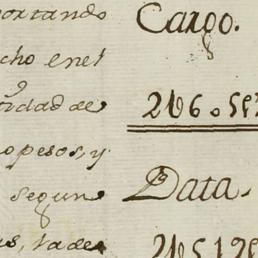 ortando
cho enel
tidad de
opesos, y
segun
us, la de
Cargo.
Data.